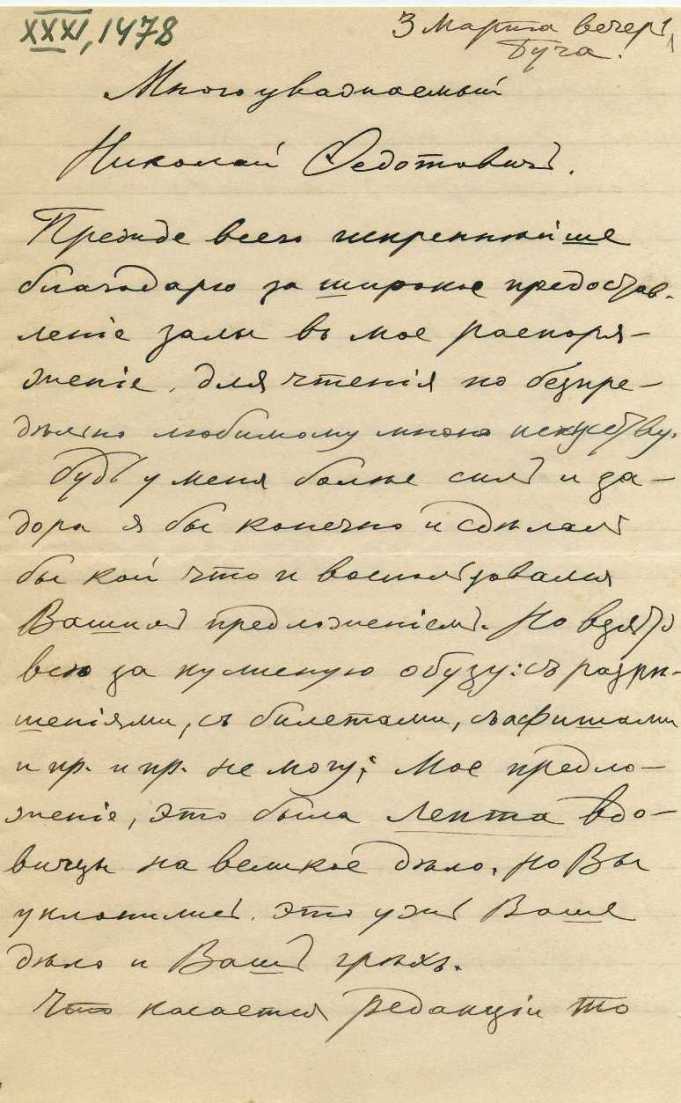 XXXI, 1478
3 Марта вечер,
Буча.
Многоуважаемый
Николай Федотовичъ.
Прежде всего искреннѣйше
благодарю за широкое предостав-
леніе залы въ мое распоря-
женіе, для чтенія по безпре-
дѣльно любимому мною искусству.
Будь у меня болѣе силъ и за-
дора я бы конечно и сдѣлалъ
бы кой что и воспользовался
Вашимъ предложеніемъ. Но взять
всю за обузу: съ разрѣ-
шеніями, съ билетами, съ афишами
и пр. и пр. не могу; Мое предло-
женіе, это была лепта вдо-
вицы на великое дѣло. Но Вы
уклонились. Это ужъ Ваше
дѣло и Вашъ грѣхъ.
Что касается редакціи то